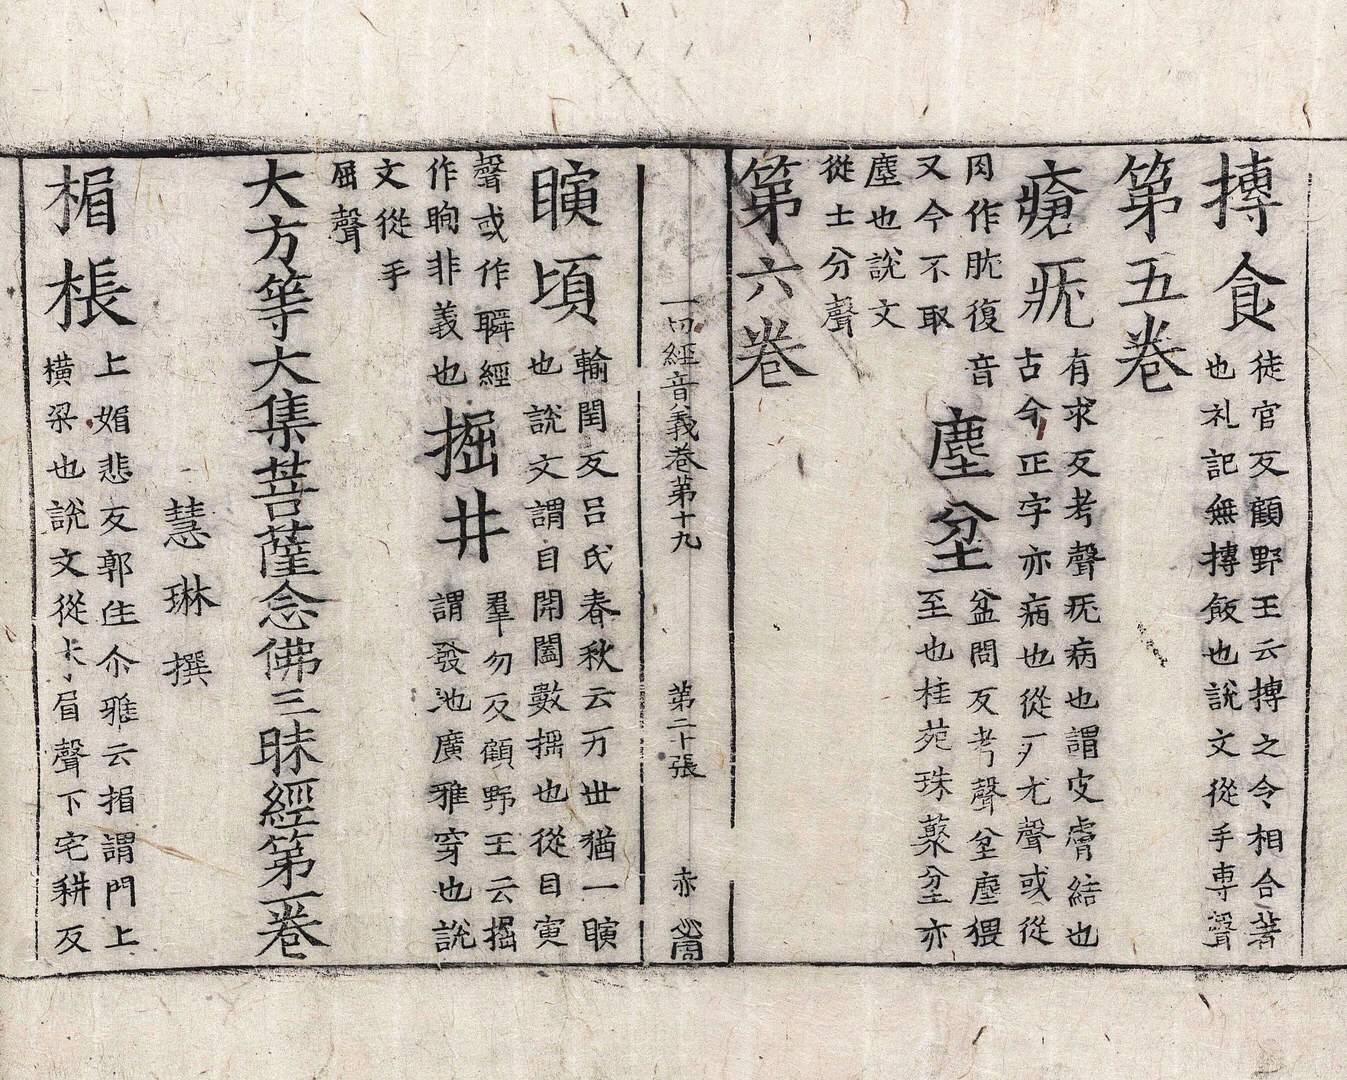 摶食徒官反顧野王云摶之令相合著
也礼記無摶飯也說文從手専聲
第五巻
瘡疣有求反考聲疣病也謂皮膚結也
古今正字亦病也從疒尤聲或從
肉作肬復音
又今不取
塵坌盆問反考聲坌塵猥
至也桂苑珠藂坌亦
塵也說文
從土分聲
第六巻
一切經音義巻第十九
第二十張
赤
瞚頃輸閏反吕氏春秋云万世猶一瞚
也說文謂目開闔數揺也從目寅
聲或作瞬經
作眴非義也
掘井羣勿反顧野王云掘
謂發池廣雅穿也說
文從手
屈聲
大方等大集菩薩念佛三昧經第一巻
慧琳撰
楣棖上媚悲反郭注尒雅云楣謂門上
橫梁也說文從木眉聲下宅耕反